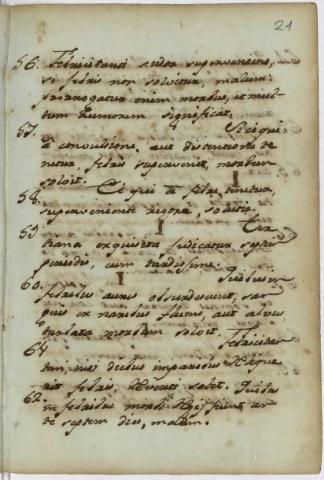 21
56. Febricitanti sudor superveniens,
si febris non solvitur, malum:
prorrogatur enim morbus, et mul-
tum humorem significat.
57. Si ei qui
a convulsione, aut distentione te
netur febris supervenit, morbum
solvit.
58. Ei qui a febre tenetur,
superveniente rigore, solutio.
59. Ter
tiana exquisita judicatur septem
periodis, cum tardissime.
60. Quibus in
febribus aures obsurduerunt, san
guis ex naribus fluens, aut alvus
turbata morbum solvit.
61 Febricitan
tem, nisi diebus imparibus relique
rit febris, reverti solet. Quibus
62. in febribus morbi regii fiunt an
te septem dies, malum.